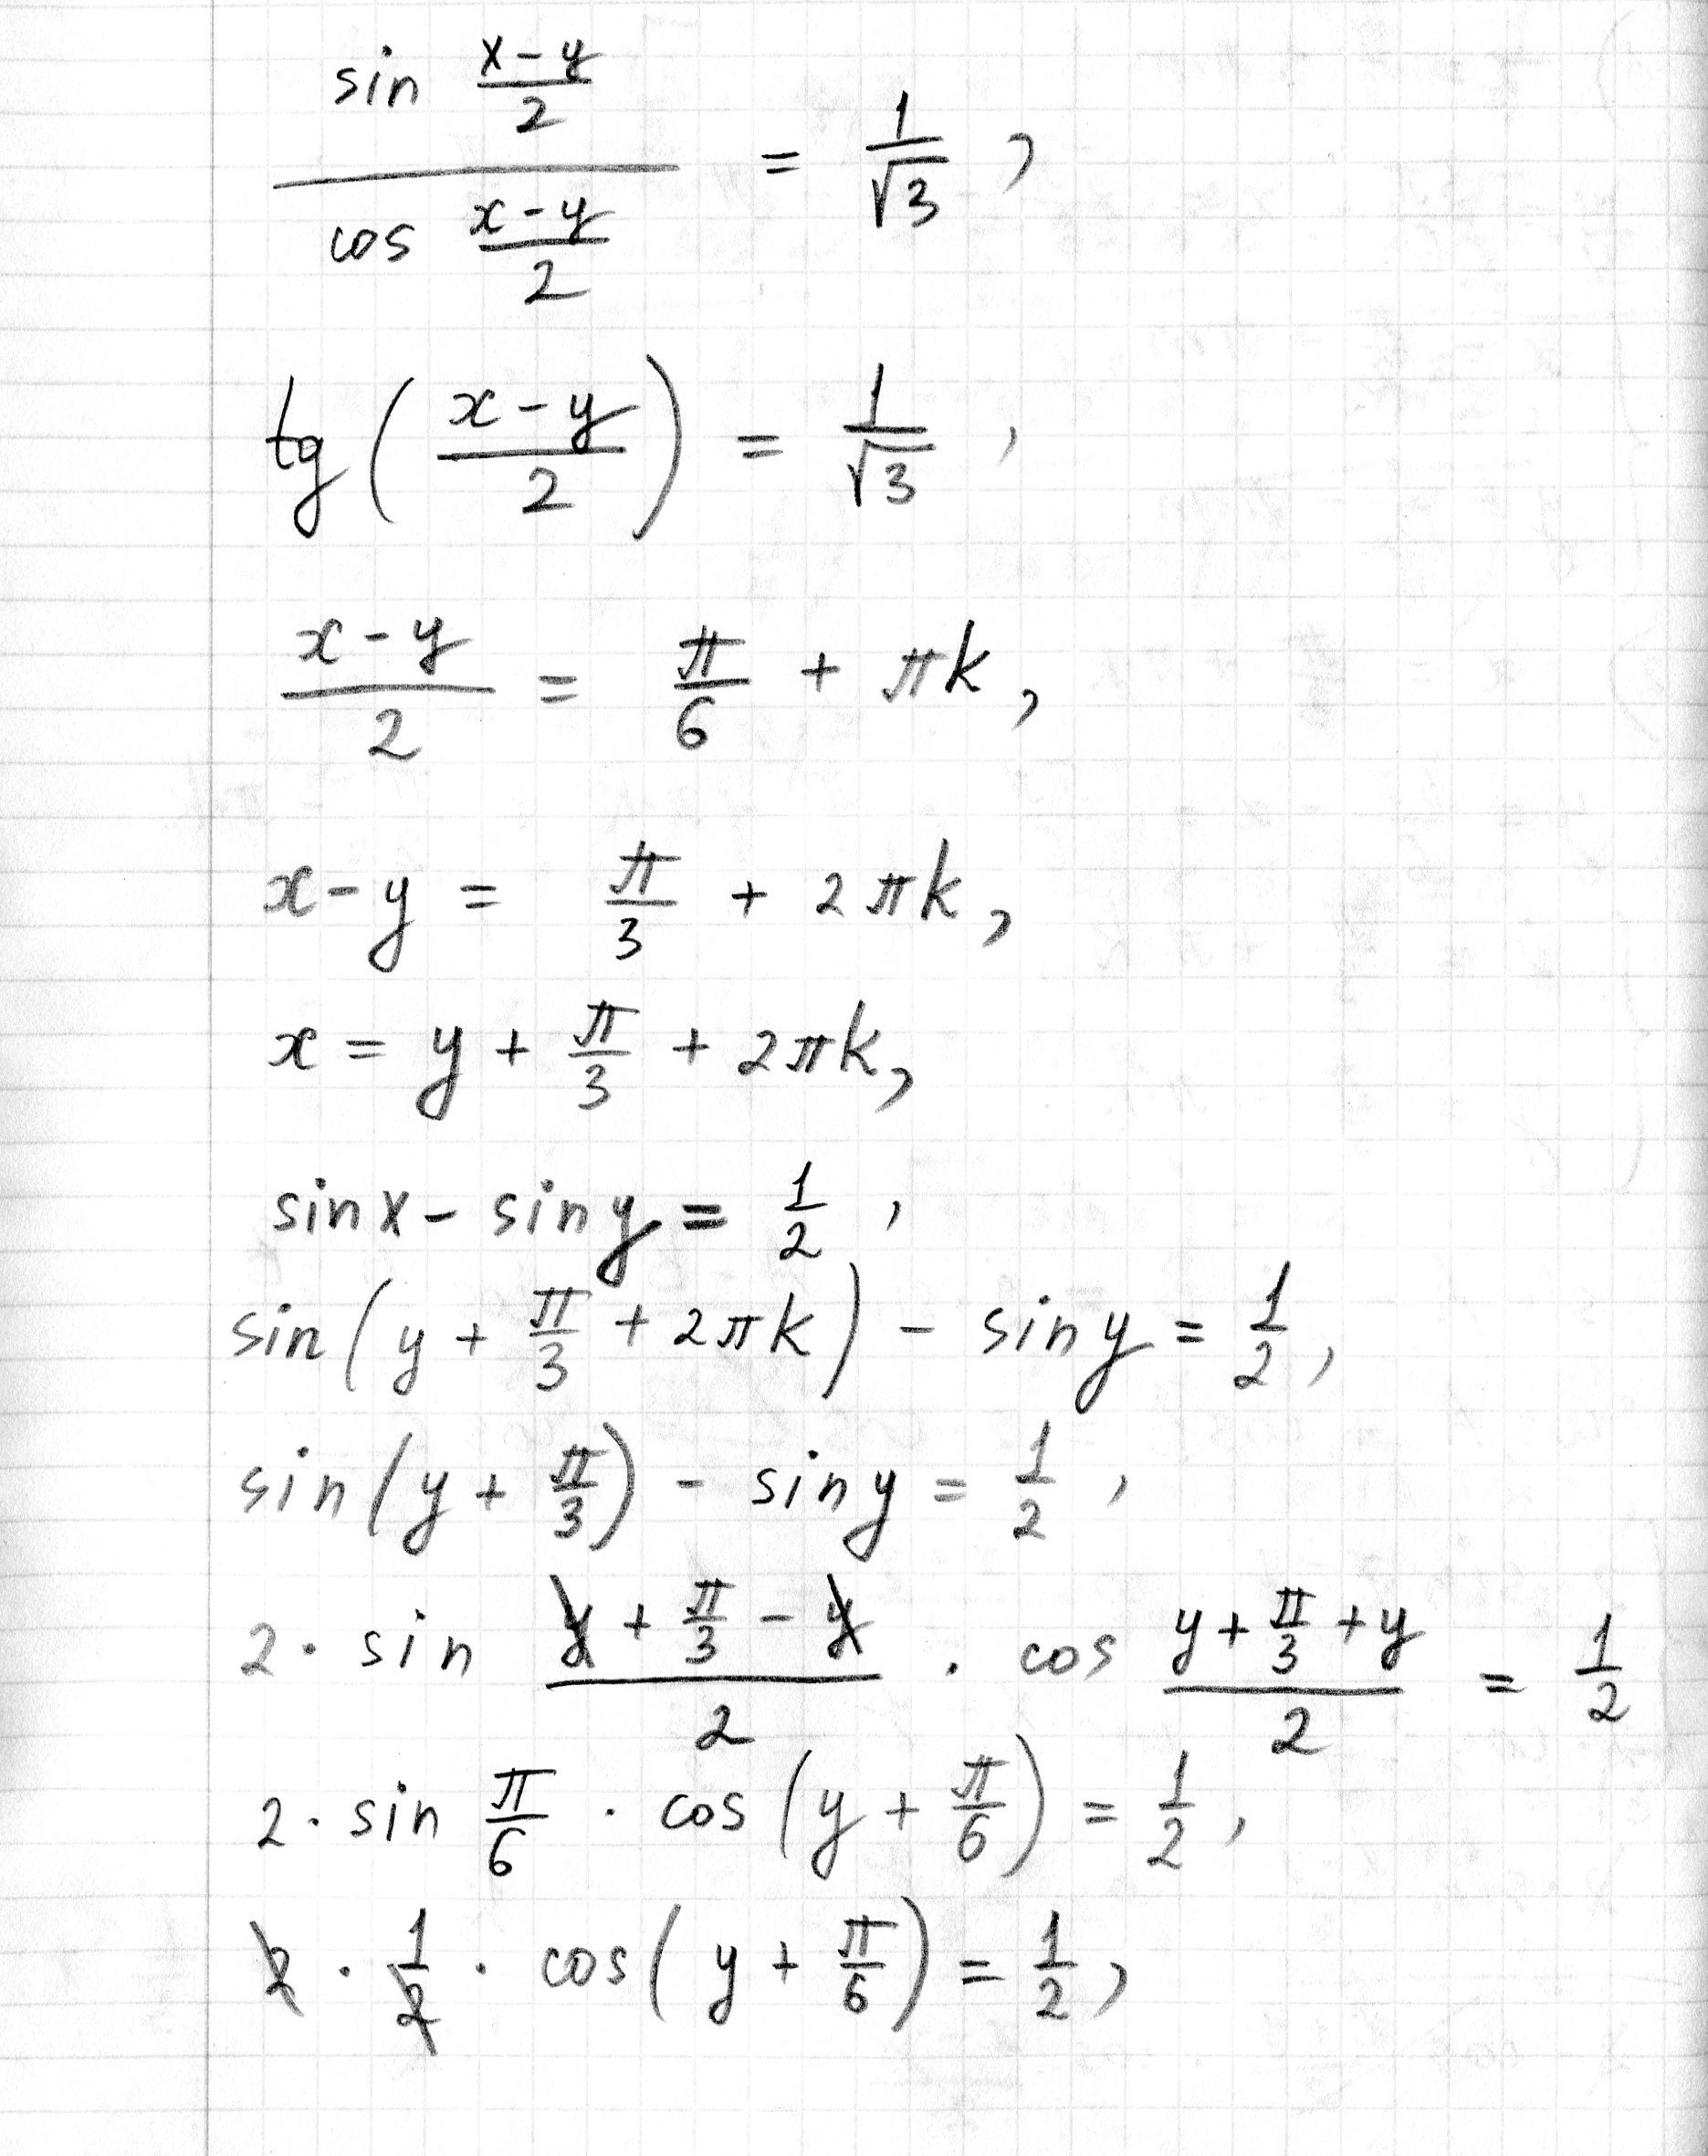 sin (x-y)/2 / cos (x-y)/2 = 1/√3 ,
tg ( (x-y)/2 ) = 1/√3 ,
(x-y)/2 = π/6 + πk ,
x - y = π/3 + 2πk ,
x = y + π/3 + 2πk ,
sin x - sin y = 1/2 ,
sin ( y + π/3 + 2πk ) - sin y = 1/2 ,
sin ( y + π/3 ) - sin y = 1/2 ,
2 · sin (y + π/3 - y)/2 · cos (y + π/3 + y)/2 = 1/2
2 · sin π/6 · cos ( y + π/6 ) = 1/2 ,
2 · 1/2 · cos ( y + π/6 ) = 1/2 ,